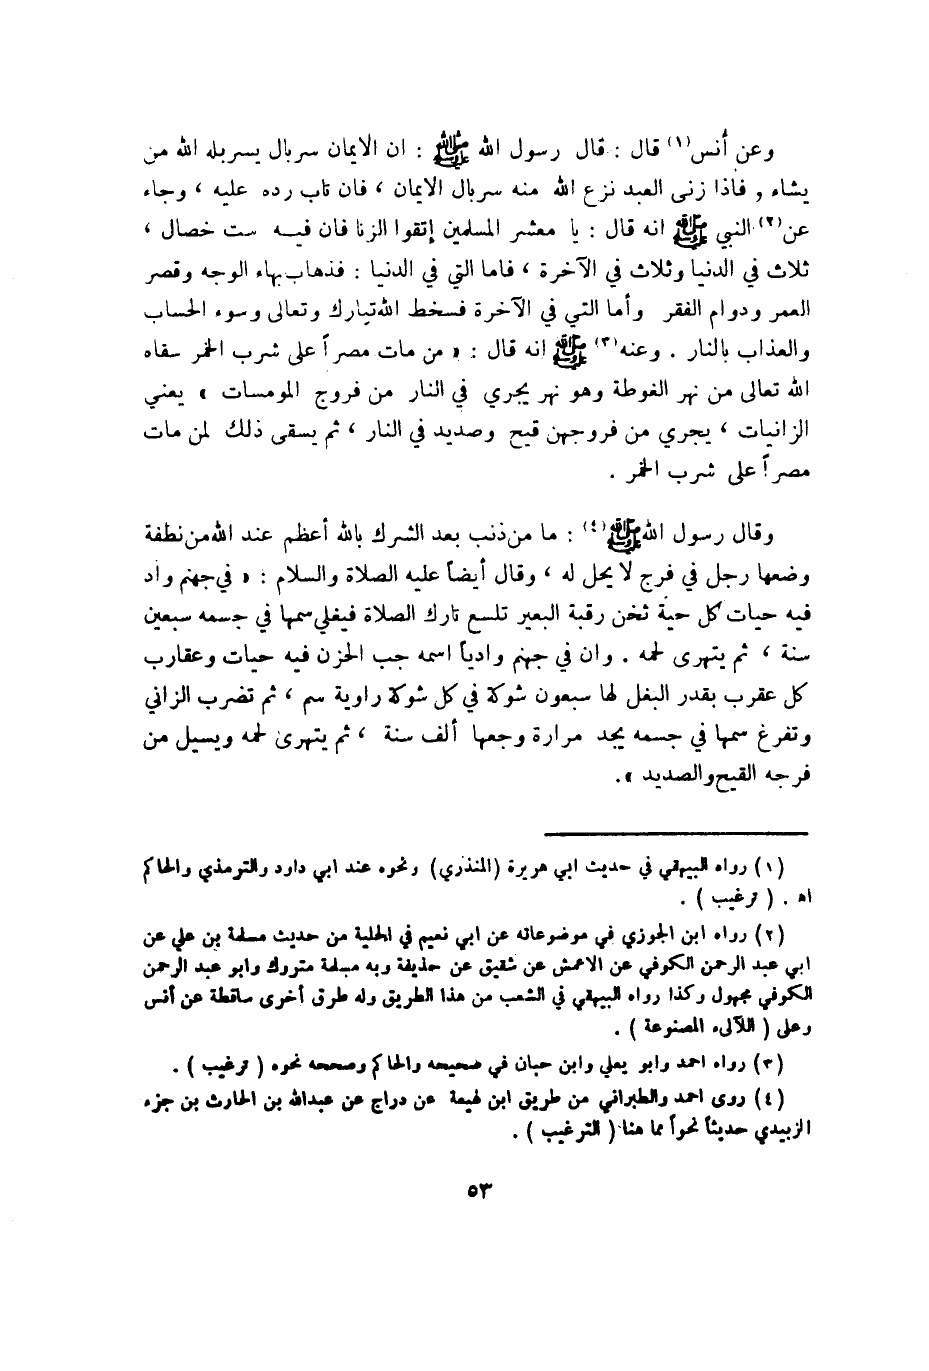 وعن أنس(١) قال : قال رسول الله ﷺ : ان الايمان سربال يسربله الله من
يشاء , فاذا زنى العبد نزع الله منه سربال الايمان ، فان تاب رده عليه ، وجاء
عن(٢) النبي ﷺ انه قال : يا معشر المسلمين إتقوا الزنا فان فيه ست خصال ،
ثلاث في الدنيا وثلاث في الآخرة ، فاما التي في الدنيا : فذهاب بهاء الوجه وقصر
العمر ودوام الفقر وأما التي في الآخرة فسخط الله تبارك وتعالى وسوء الحساب
والعذاب بالنار . وعنه(٣) ﷺ انه قال : « من مات مصراً على شرب الخمر سقاه
الله تعالى من نهر الغوطة وهو نهر يجري في النار من فروج المومسات » يعني
الزانيات ، يجري من فروجهن قيح وصديد في النار ، ثم يسقى ذلك لمن مات
مصراً على شرب الخمر .
وقال رسول الله ﷺ(٤) : ما من ذنب بعد الشرك بالله أعظم عند الله من نطفة
وضعها رجل في فرج لا يحل له ، وقال أيضاً عليه الصلاة والسلام : « في جهنم واد
فيه حيات كل حية ثخن رقبة البعير تلسع تارك الصلاة فيغلي سمها في جسمه سبعين
سنة ، ثم يتهرى لحمه . وان في جهنم وادياً اسمه جب الحزن فيه حيات وعقارب
كل عقرب بقدر البغل لها سبعون شوكة في كل شوكة راوية سم ، ثم تضرب الزاني
وتفرغ سمها في جسمه يجد مرارة وجعها ألف سنة ، ثم يتهرئ لحمه ويسيل من
فرجه القيح والصديد ».
(١) رواه البيهقي في حديث ابي هريرة (المنذري) ونحوه عند ابي داود والترمذي والحاكم
اه . ( ترغيب ) .
(٢) رواه ابن الجوزي في موضوعاته عن ابي نعيم في الحلية من حديث مسلمة بن علي عن
ابي عبد الرحمن الكوفي عن الاعمش عن شقيق عن حذيفة وبه مسلمة متروك وابو عبد الرحمن
الكوفي مجهول وكذا رواه البيهقي في الشعب من هذا الطريق وله طرق أخرى ساقطة عن أنس
وعلي ( اللآلىء المصنوعة ) .
(٣) رواه احمد وابو يعلي وابن حبان في صحيحه والحاكم وصححه نحوه ( ترغيب ) .
(٤) روى احمد والطبراني من طريق ابن لهيعة عن دراج عن عبدالله بن الحارث بن جزء
الزبيدي حديثاً نحواً مما هنا ( الترغيب ) .
٥٣